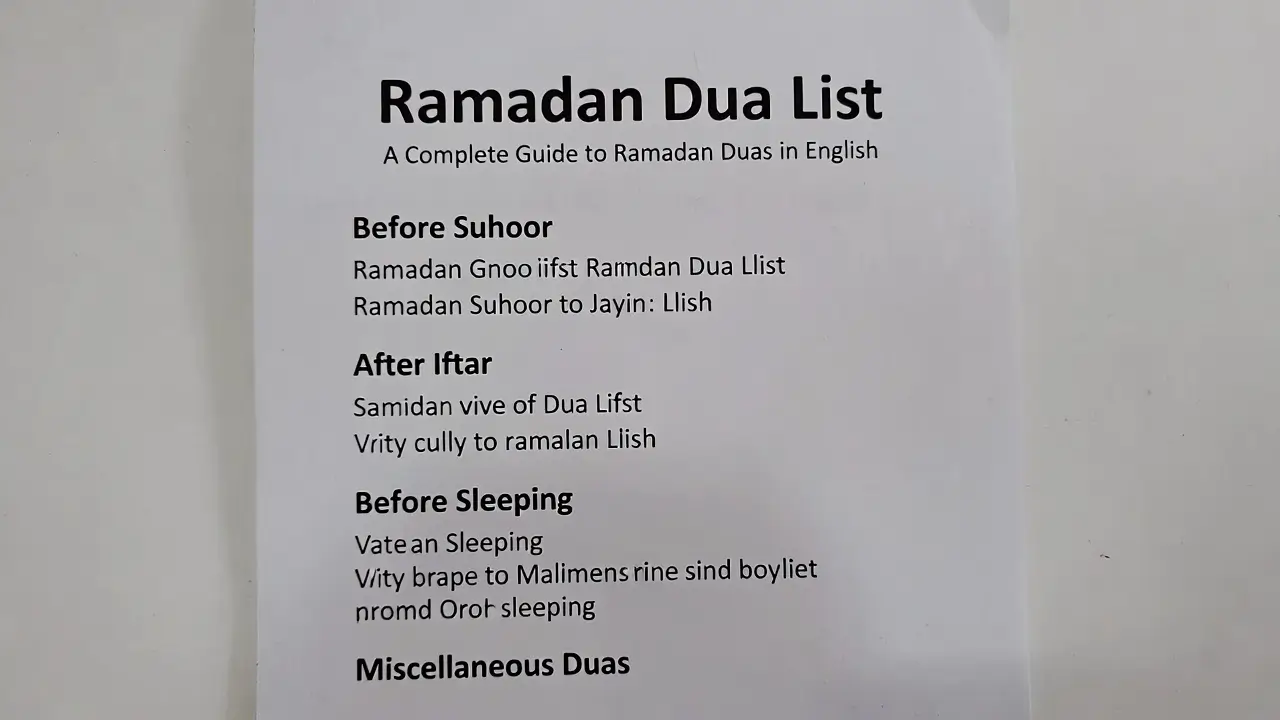 Ramadan Dua List
A Complete Guide to Ramadan Duas in English
Before Suhoor
Ramadan Gnoo iifst Ramdan Dua Llist
Ramadan Suhoor to Jayin: Llish
After Iftar
Samidan vive of Dua Lifst
Vrity cully to ramalan Llish
Before Sleeping
Vatean Sleeping
Vity brape to Malimens rine sind boyliet
nromd Oror sleeping
Miscellaneous Duas